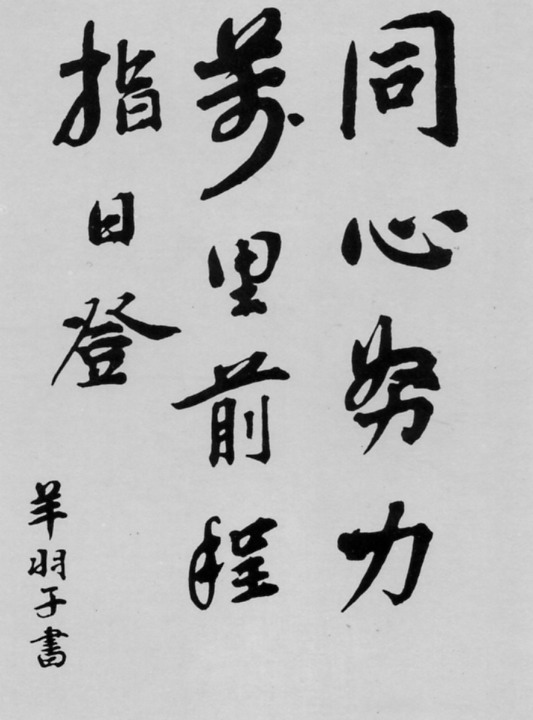 同心努力
萬里前程
指日登
羊羽子書